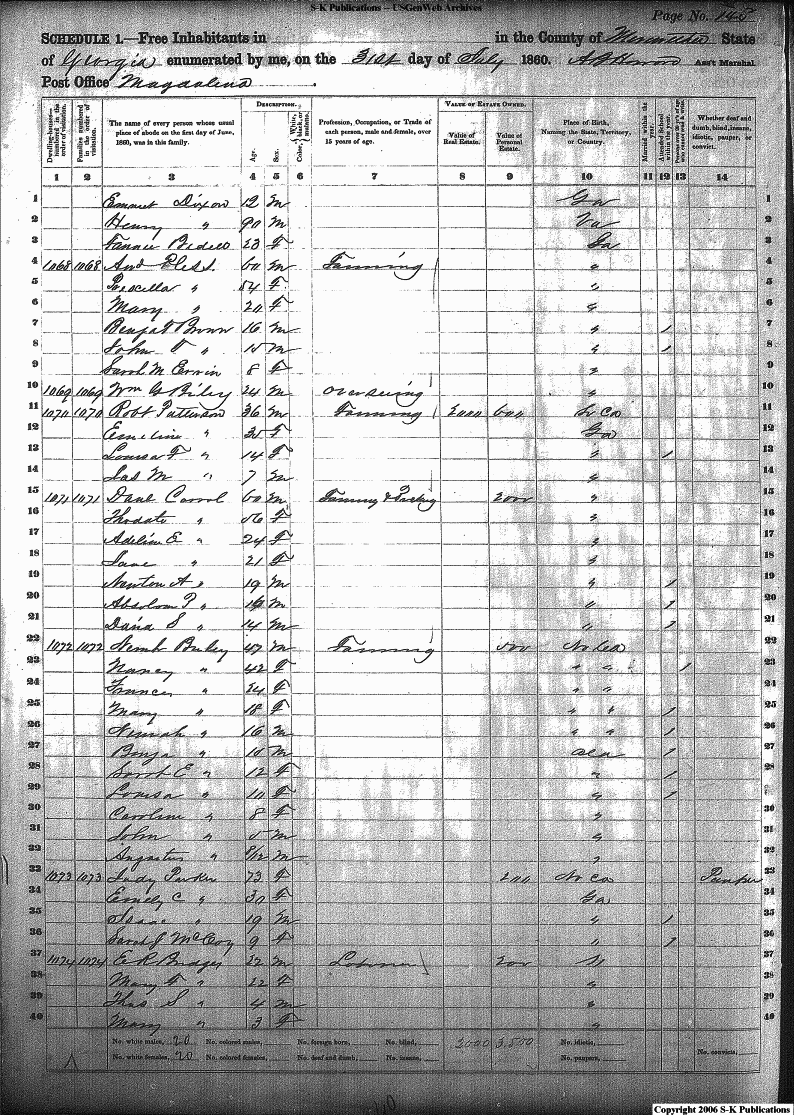 S-K Publications -- USGenWeb Archives
Page No. 143
SCHEDULE 1.—Free Inhabitants in in the County of State
of Georgia enumerated by me, on the 31st day of July 1860. Ass't Marshal.
Post Office Magdalina
DESCRIPTION. VALUE OF ESTATE OWNED.
Dwelling-houses—numbered in the order of visitation. Families numbered in the order of visitation. The name of every person whose usual place of abode on the first day of June, 1860, was in this family. Age. Sex. Color, White, black, or mulatto. Profession, Occupation, or Trade of each person, male and female, over 15 years of age. Value of Real Estate. Value of Personal Estate. Place of Birth, Naming the State, Territory, or Country. Married within the year. Attended School within the year. Whether deaf and dumb, blind, insane, idiotic, pauper, or convict.
1 2 3 4 5 6 7 8 9 10 11 12 13 14
1 Emmet Dixon 12 M Ga 1
2 Henry " 90 M Va 2
3 Fannie Bedell 23 F Ga 3
4 1068 1068 60 M Farming " 4
5 " 54 F " 5
6 Mary " 20 F " 6
7 Brown 16 M " 1 7
8 John " 15 M " 1 8
9 Sarah M Erwin 8 F " 9
10 1069 1069 Wm G 24 M overseeing " 10
11 1070 1070 Robt Pattinson 36 M Farming 2000 600 So Ca 11
12 Emeline " 35 F Ga 12
13 Louisa F " 14 F " 1 13
14 Jas M " 7 M " 14
15 1071 1071 Danl Carrol 60 M Farming & 2000 " 15
16 " 56 F " 16
17 Adeline E " 24 F " 17
18 Jane " 21 F " 18
19 Newton A " 19 M " 1 19
20 Absolom P " 16 M " 1 20
21 S " 14 M " 1 21
22 1072 1072 47 M Farming 500 No Ca 22
23 Nancy " 42 F " " 1 23
24 Frances " 24 F " " 24
25 Mary " 18 F " " 1 25
26 " 16 M " " 1 26
27 Benja " 15 M Ala 1 27
28 Sarah E " 12 F " 1 28
29 Louisa " 10 F " 1 29
30 Caroline " 8 F " 30
31 John " 5 M " 31
32 Augustus " 8/12 M " 32
33 1073 1073 Judy Parker 73 F 200 No Ca Pauper 33
34 Emely C " 30 F Ga 34
35 Isaac " 19 M " 1 35
36 Sarah J McCoy 9 F " 1 36
37 1074 1074 E R Bridges 22 M Laborer 200 " 37
38 Mary F " 22 F " 38
39 Thos S " 4 M " 39
40 Mary " 3 F " 40
No. white males, 20 No. colored males, No. foreign born, No. blind, 2000 3,500 No. idiotic,
No. white females, 20 No. colored females, No. deaf and dumb, No. insane, No. paupers, No. convicts,
Copyright 2006 S-K Publications